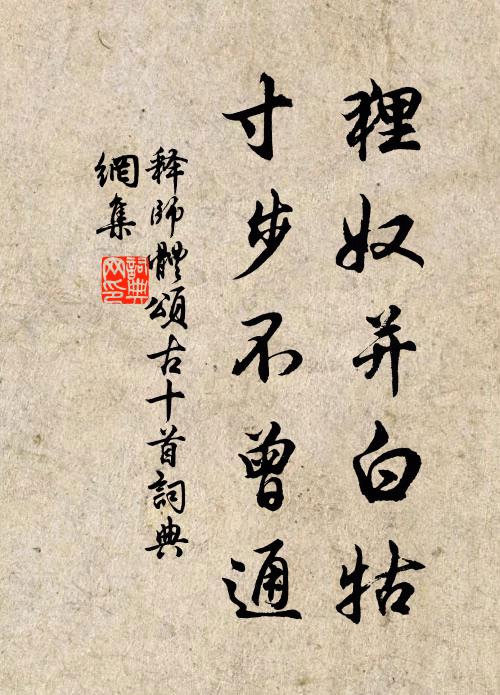 貍奴并白牯
寸步不曾通
释師體頌古十首詞典
網集
詞典
网印